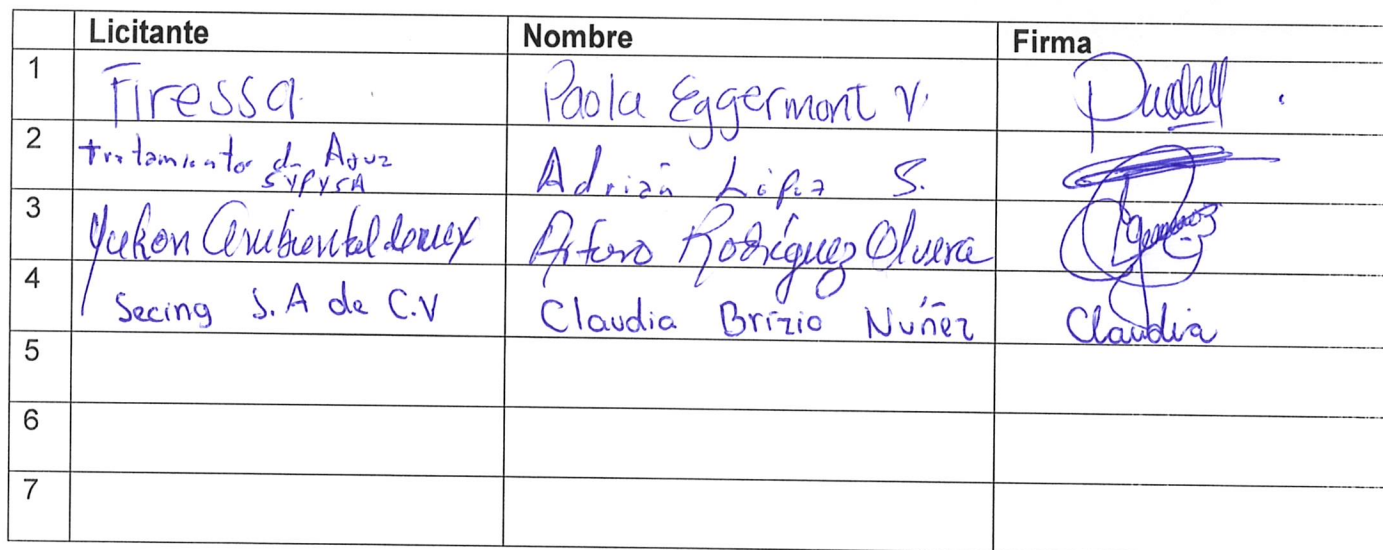 Licitante Nombre Firma
1 Firessa Paola Eggermont V.
2 Tratamiento de Agua
SYPYSA Adrián López S.
3 Yukon Ambiental Arturo Rodríguez Olvera
4 Secing S.A de C.V Claudia Brizio Núñez Claudia
5
6
7